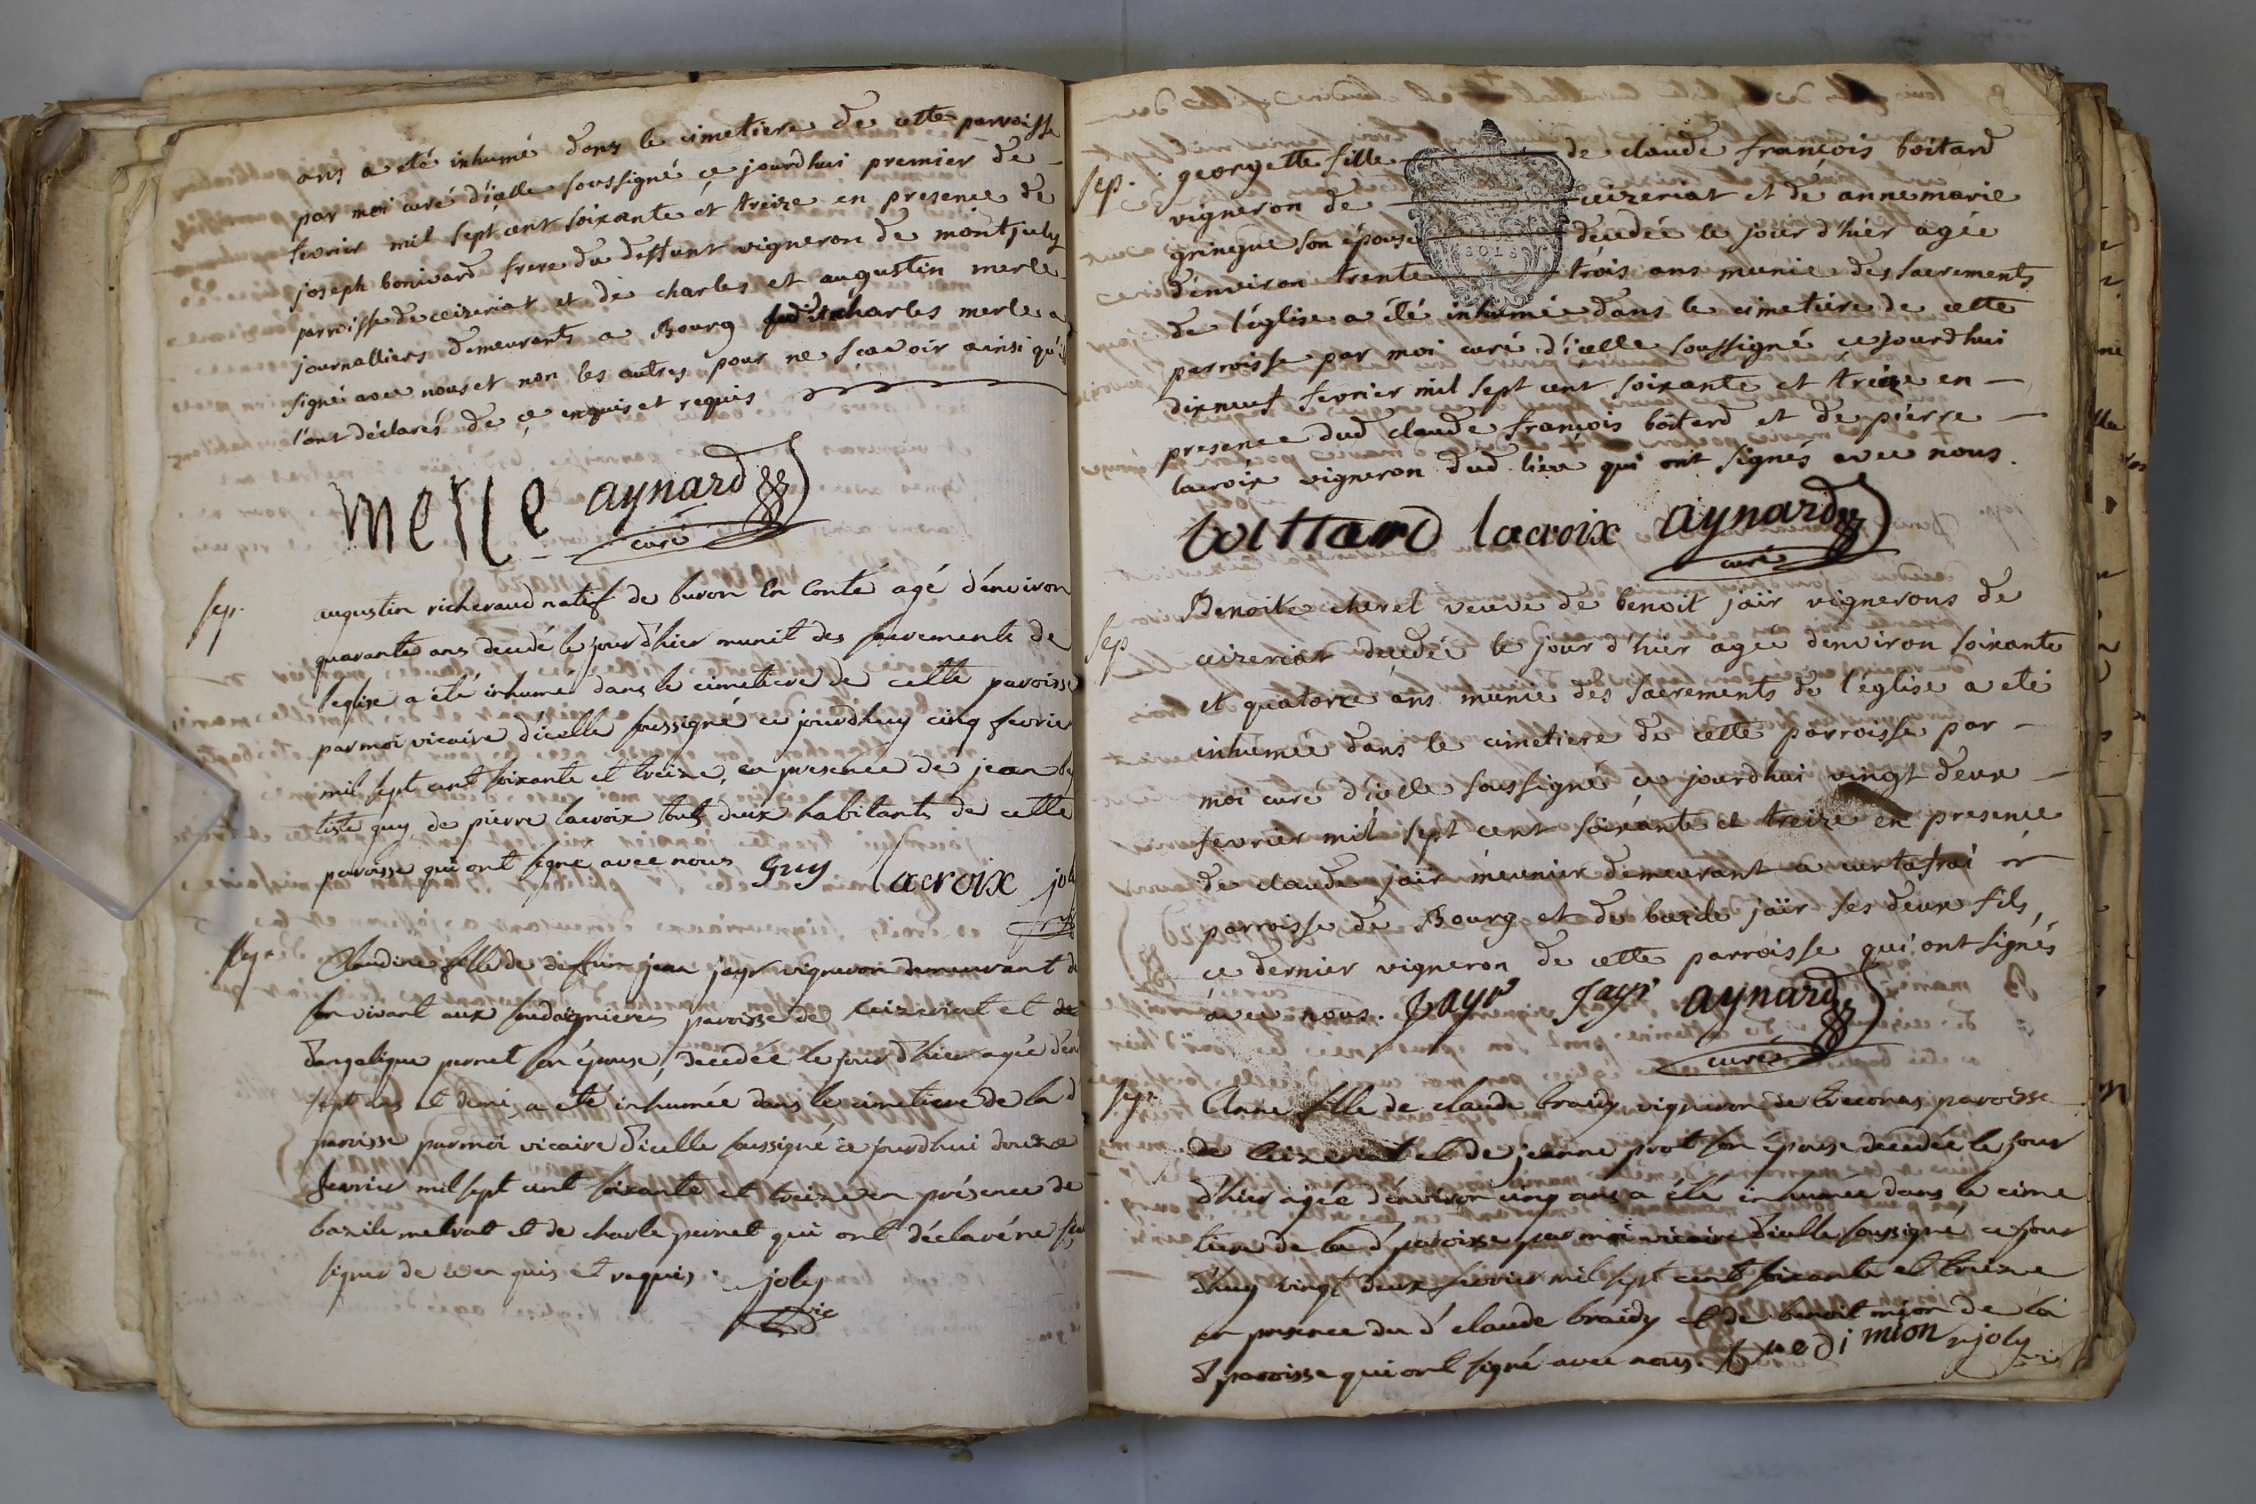 ans a été inhumé dans le cimetiere de cette parroisse
par moi curé d'icelle soussigné ce jourdhui premier de
fevrier mil sept cent soixante et treize en presence de
joseph bonivard frere du deffunt vigneron de montjuly
parroisse de ceizeriat et de charles et augustin merle
journalliers demeurants a Bourg charles merle a
signé avec nous et non les autres pour ne scavoir ainsi qu'il
l'ont déclarés de ce enquis et requis
merle aynard
curé
sep. augustin richeraud natif de buron En Conté agé d'environ
quarante ans decedé le jour d'hier munit des sacrements de
l'eglise a été inhumé dans le cimetiere de cette paroisse
par moi vicaire d'icelle soussigné ce jourdhuy cinq fevrie
mil sept cent soixante et treize, en presence de jean
tiste guy de pierre lacroix touts deux habitants de cette
paroisse qui ont signé avec nous guy lacroix jol
sep. Claudine fille de deffun jean jayr vigneron demeurant
son vivant aux paroisse de Ceizeriat et de
d'angelique pernet son épouse, decedée le jour d'hier agée d'en
sept ans et demi, a été inhumée dans le cimetiere de la d
paroisse par moi vicaire d'icelle soussigné ce jourdhui douze
fevrier mil sept cent soixante et treize en présence de
bazile metrat et de charle pernet qui ont déclaré ne sca
signer de ce en quis et requis. joly
vic
sep. georgette fille de claude françois boitard
vigneron de ceizeriat et de anne marie
gringue son épouse decedée le jour d'hier agée
d'environ trente trois ans munie des sacrements
SOLS
de l'église a été inhumée dans le cimetiere de cette
parroisse par moi curé d'icelle soussigné ce jourdhui
dixneuf fevrier mil sept cent soixante et treize en
presence dud claude françois boitard et de pierre
lacroix vigneron dud. lieu qui ont signés avec nous.
boittard lacroix aynard
curé
sep Benoite cheret veuve de benoit jaïr vignerons de
ceizeriat decedée le jour d'hier agée denviron soixante
et quatorze ans munie des sacrements de l'église a eté
inhumée dans le cimetiere de cette parroisse par
moi curé d'icelle soussigné ce jourdhui vingt deux
fevrier mil sept cent soixante et treize en presence
de claude jaïr meunier demeurant a curtafrai
parroisse de Bourg et de bazile jaïr ses deux fils,
ce dernier vigneron de cette parroisse qui ont signés
avec nous. Jayr Jayr aynard
curé
sep. Anne fille de claude braidy vigneron de treconas paroisse
de Ceizeriat et de jeanne prot son epouse decedée le jour
d'hier agée d'environ cinq ans a été inhumée dans le cime
tiere de la d paroisse par moi vicaire d'icelle soussigné, ce jour
d'huy vingt deux fevrier mil sept cent soixante et treize
en presence du d claude braidy et de benoit mion de la
d paroisse qui ont signé avec nous. mion joly